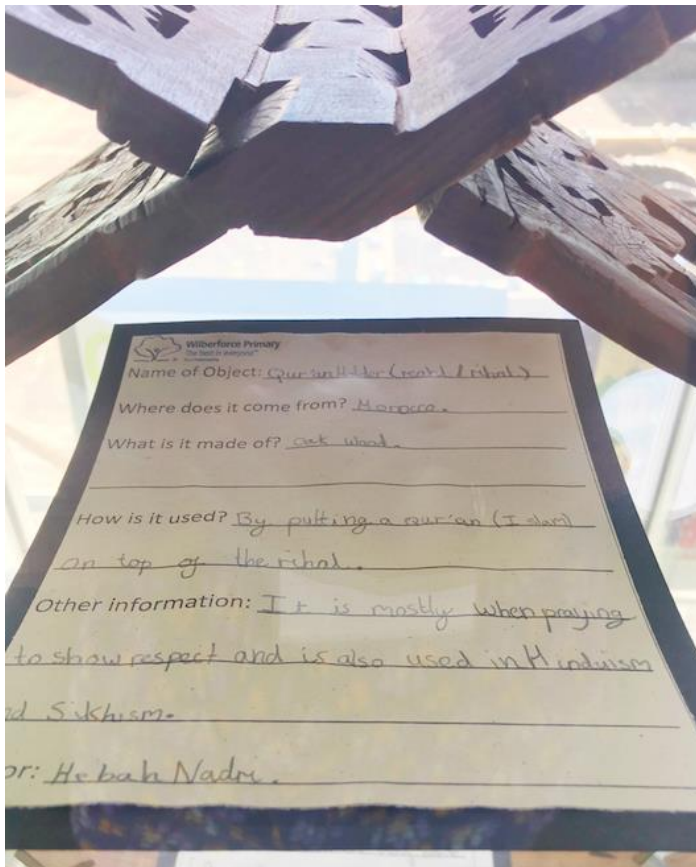 Wilberforce Primary
The best in everyone™
Name of Object: Qur'an (rihal)
Where does it come from? Morocco.
What is it made of? oak wood.
How is it used? By putting a qur'an (Islam)
on top of the rihal.
Other information: It is mostly when praying
to show respect and is also used in Hinduism
Sikhism.
Hebah